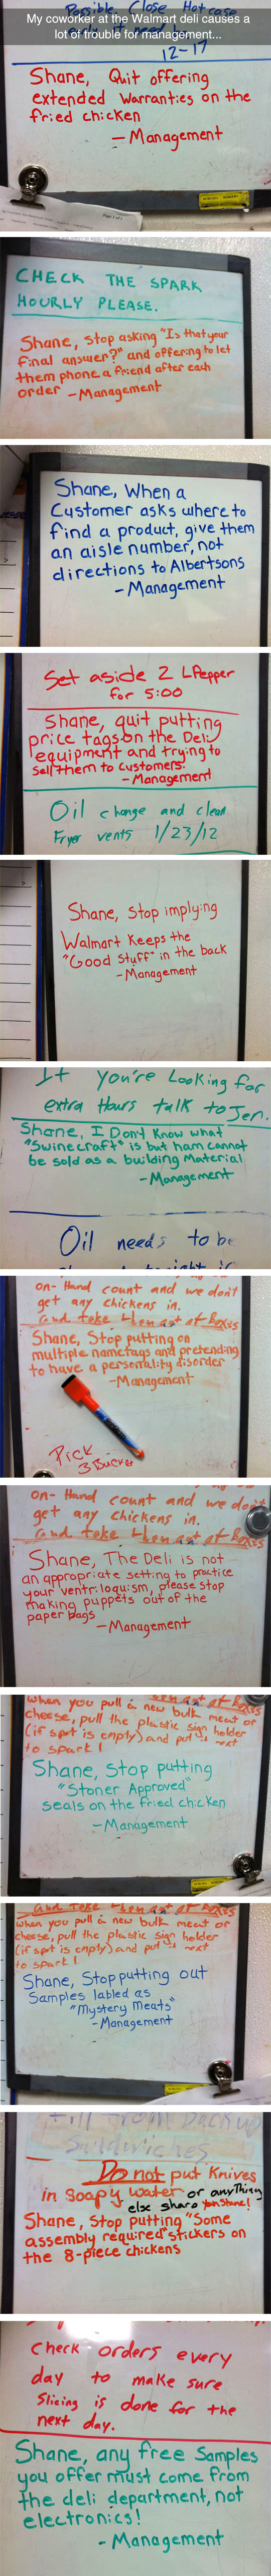 Possible. Close Hot case
My coworker at the Walmart deli causes a
lot of trouble for management...
12-17
Shane, Quit offering
extended Warranties on the
fried chicken
- Management
Page 1 of 1
CHECK THE SPARK
HOURLY PLEASE.
Shane, Stop asking "Is that your
final answer?" and offering to let
them phone a friend after each
order - Management
Shane, When a
Customer asks where to
find a product, give them
an aisle number, not
directions to Albertsons
- Management
Set aside 2 LPepper
for 5:00
Shane, quit putting
price tags on the Deli
equipment and trying to
sell them to customers.
- Management
Oil change and clean
Fryer vents 1/23/12
Shane, Stop implying
Walmart Keeps the
"Good Stuff" in the back
- Management
If you're Looking for
extra Hours talk to Jen.
Shane, I Don't Know what
"Swinecraft" is but ham cannot
be sold as a building Material
- Management
Oil needs to be
on-Hand count and we don't
get any chickens in.
Shane, Stop putting on
multiple nametags and pretending
to have a personality disorder
- Management
Pick
3 Bucket
on-Hand count and we don't
get any chickens in.
Shane, The Deli is not
an appropriate setting to practice
your ventriloquism, please stop
making puppets out of the
paper bags
- Management
when you pull a new bulk meat or
cheese, pull the plastic sign holder
(if spot is empty) and put it next
to spark!
Shane, Stop putting
"Stoner Approved"
seals on the fried chicken
- Management
when you pull a new bulk meat or
cheese, pull the plastic sign holder
(if spot is empty) and put it next
to spark!
Shane, Stop putting out
Samples labled as
"Mystery Meats"
- Management
Sandwiches
Do not put Knives
in Soapy water or anything
else sharp
Shane, Stop putting "Some
assembly required" stickers on
the 8-piece chickens
Check orders every
day to make sure
Slicing is done for the
next day.
Shane, any free Samples
you offer must come from
the deli department, not
electronics!
- Management